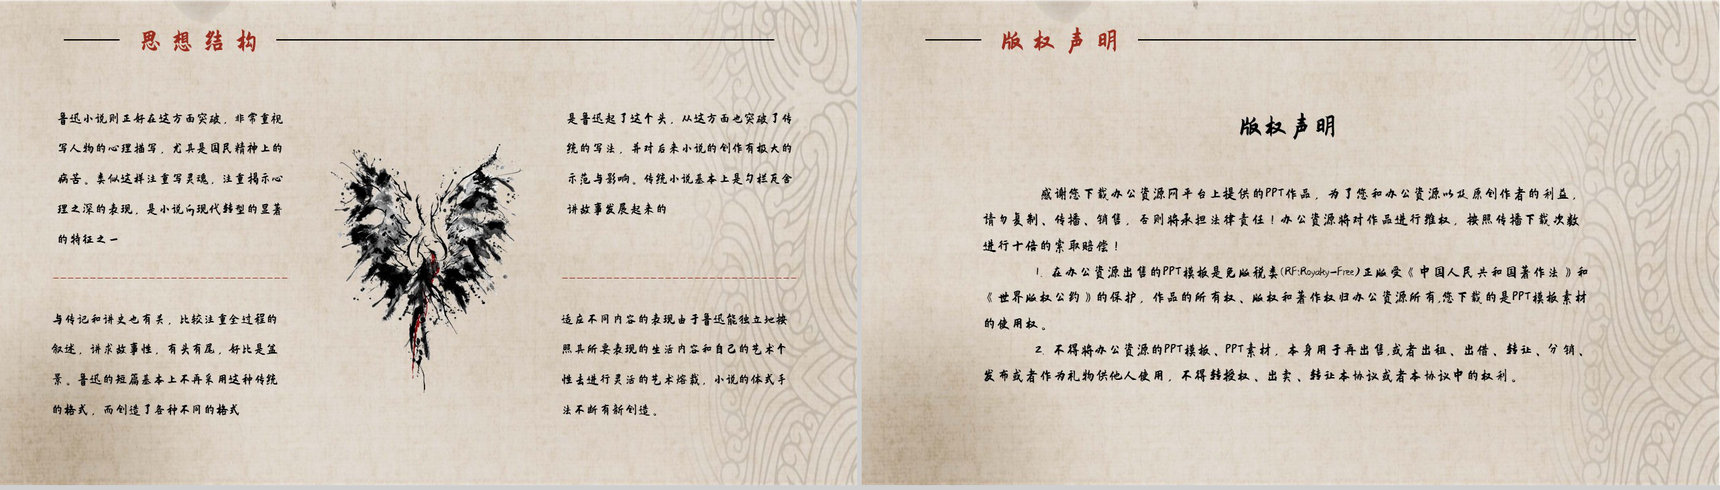 思想结构
鲁迅小说则正好在这方面突破，非常重视
写人物的心理描写，尤其是国民精神上的
病苦。类似这样注重写灵魂，注重揭示心
理之深的表现，是小说向现代转型的显著
的特征之一
是鲁迅起了这个头，从这方面也突破了传
统的写法，并对后来小说的创作有极大的
示范与影响。传统小说基本上是勾栏瓦舍
讲故事发展起来的
与传记和讲史也有关，比较注重全过程的
叙述，讲求故事性，有头有尾，好比是盆
景。鲁迅的短篇基本上不再采用这种传统
的格式，而创造了各种不同的格式
适应不同内容的表现由于鲁迅能独立地按
照其所要表现的生活内容和自己的艺术个
性去进行灵活的艺术熔裁，小说的体式手
法不断有新创造。
版权声明
版权声明
感谢您下载办公资源网平台上提供的PPT作品，为了您和办公资源以及原创作者的利益，
请勿复制、传播、销售，否则将承担法律责任！办公资源将对作品进行维权，按照传播下载次数
进行十倍的索取赔偿！
1. 在办公资源出售的PPT模板是免版税类(RF:Royalty-Free)正版受《中国人民共和国著作法》和
《世界版权公约》的保护，作品的所有权、版权和著作权归办公资源所有,您下载的是PPT模板素材
的使用权。
2. 不得将办公资源的PPT模板、PPT素材，本身用于再出售,或者出租、出借、转让、分销、
发布或者作为礼物供他人使用，不得转授权、出卖、转让本协议或者本协议中的权利。